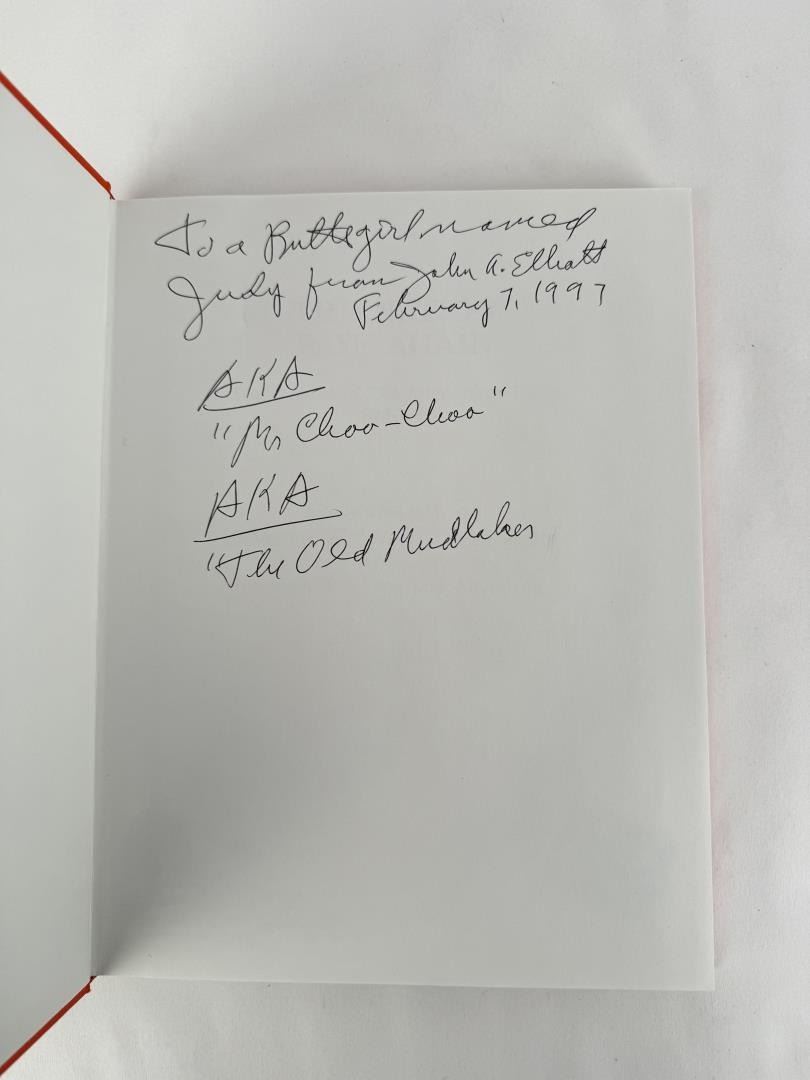 To a Butte girl named
Judy from John A. Elliott
February 7, 1997
AKA
"Mr Choo-Choo"
AKA
"The Old Mudlaker